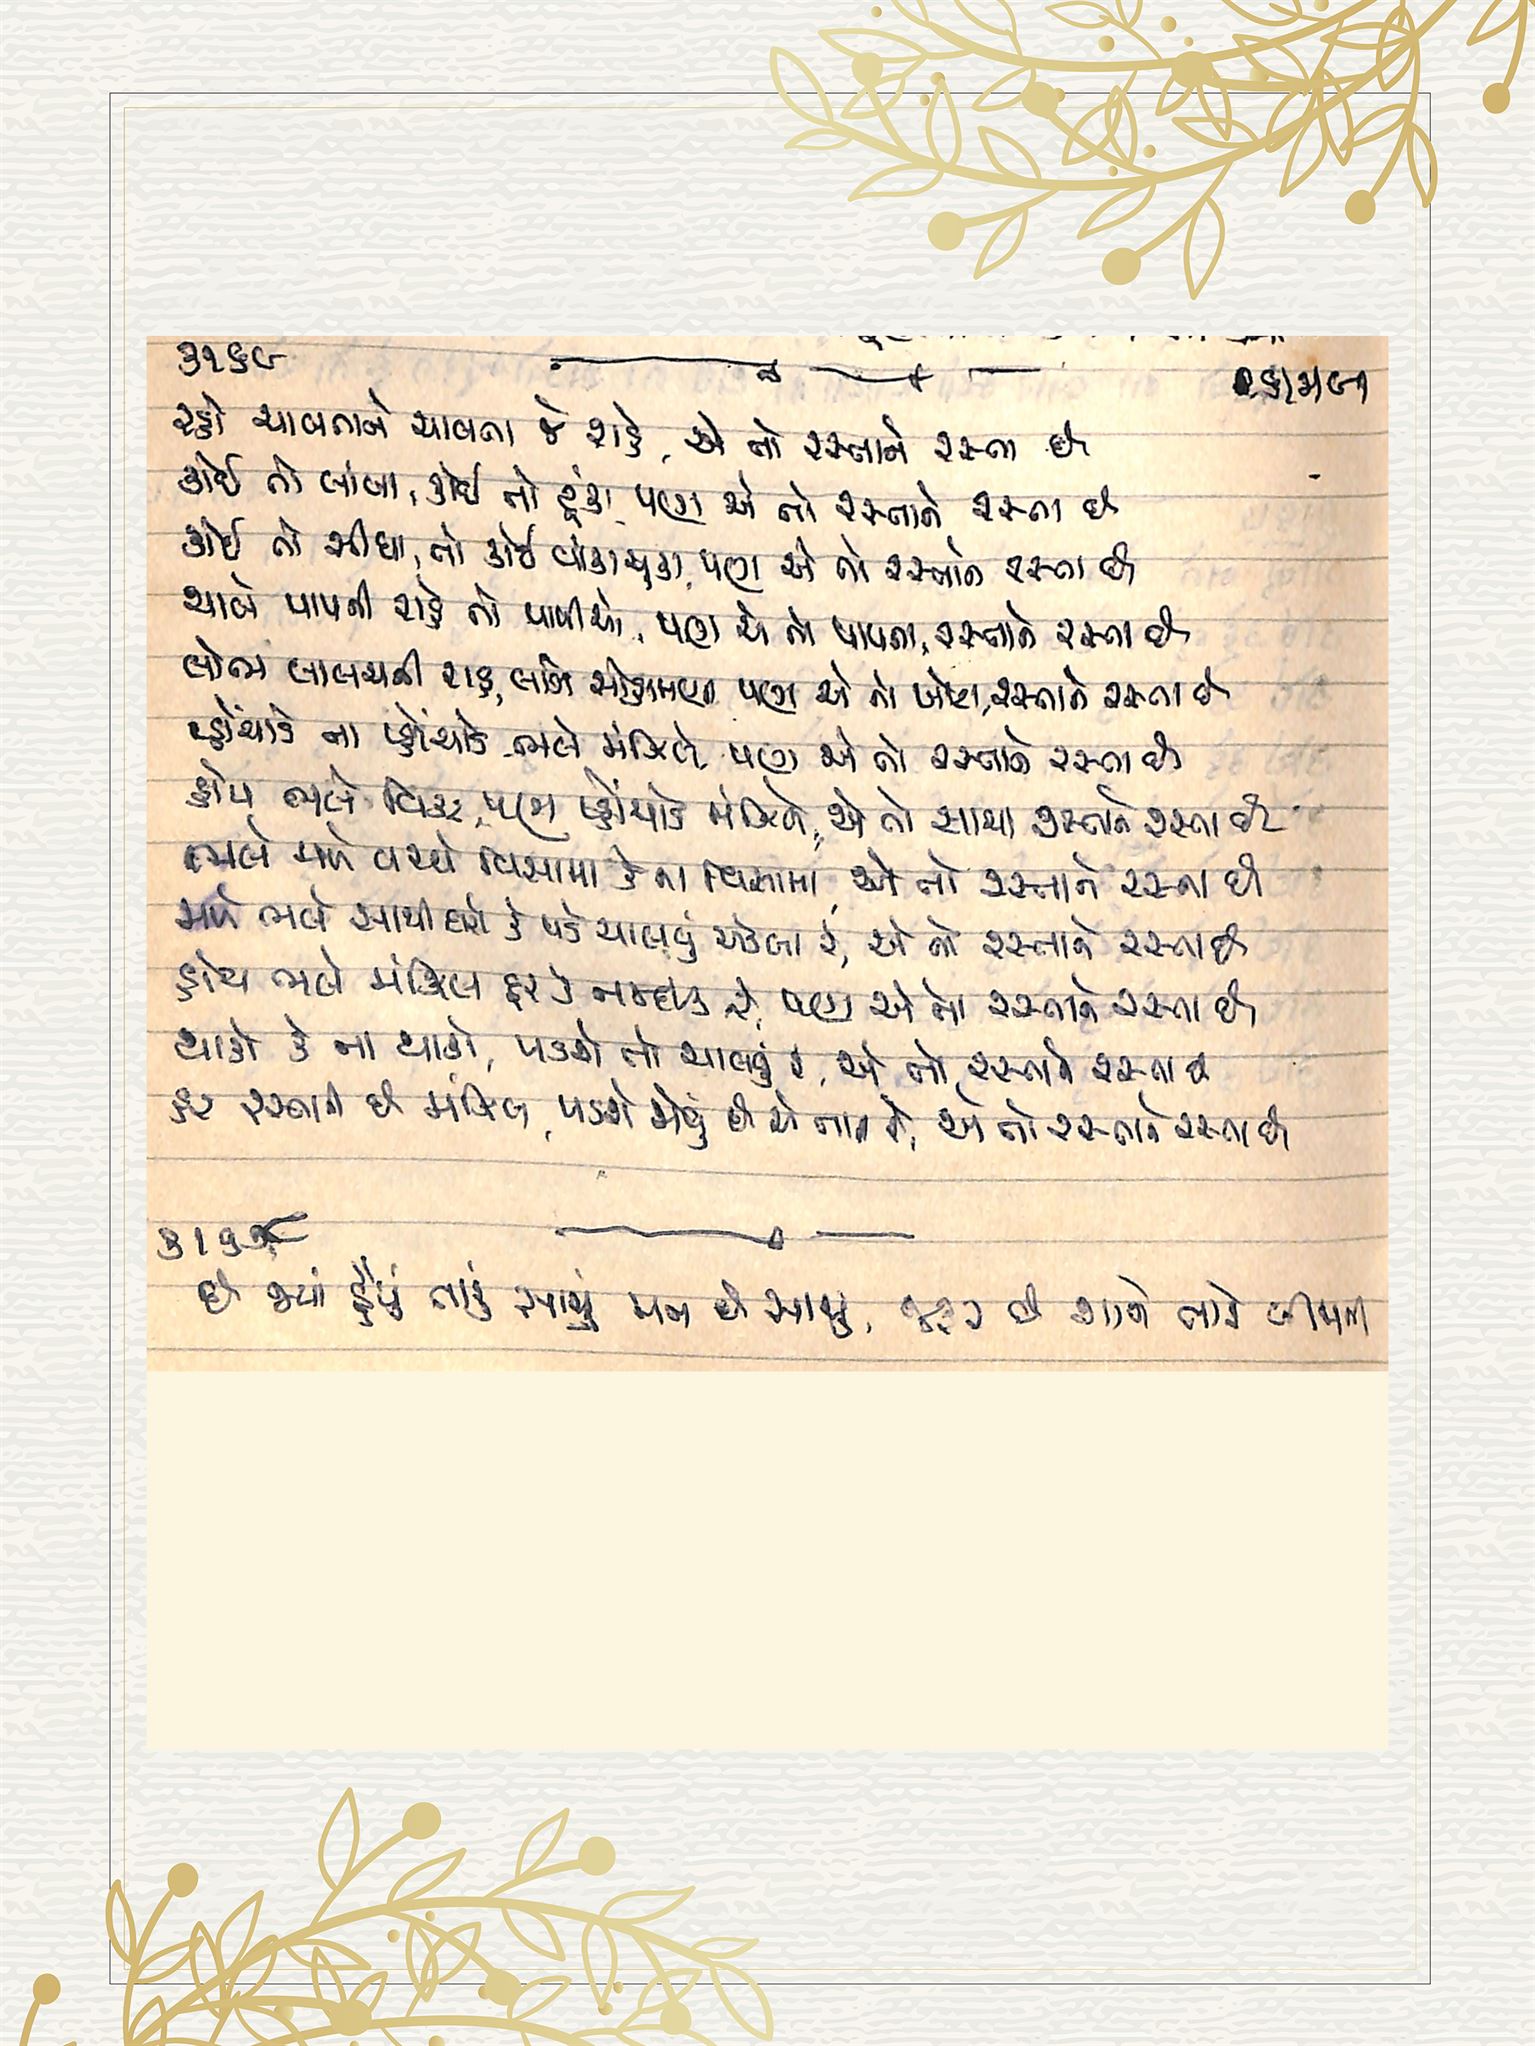 ૩૧૬૮
રહો ચાલતાને ચાલતા જે રાહે, એ તો રસ્તાને રસ્તા છે
કોઈ તો લાંબા, કોઈ તો ટૂંકા, પણ એ તો રસ્તાને રસ્તા છે
કોઈ તો સીધા, તો કોઈ વાંકાચૂકા, પણ એ તો રસ્તાને રસ્તા છે
ચાલે પાપની રાહે તો પાપીઓ, પણ એ તો પાપના, રસ્તાને રસ્તા છે
લોભ લાલચની રાહ, લાગે સોહામણા પણ એ તો ખોટા, રસ્તાને રસ્તા છે
પ્હોંચાડે ના પ્હોંચાડે ભલે મંઝિલે, પણ એ તો રસ્તાને રસ્તા છે
હોય ભલે વિકટ, પણ પ્હોંચાડે મંઝિલે, એ તો સાચા રસ્તાને રસ્તા છે
ભલે મળે વચ્ચે વિસામા કે ના વિસામા, એ તો રસ્તાને રસ્તા છે
મળે ભલે સાથીદારો કે પડે ચાલવું એકલા રે, એ તો રસ્તાને રસ્તા છે
હોય ભલે મંઝિલ દૂર કે નજદીક રે, પણ એ તો રસ્તાને રસ્તા છે
થાકો કે ના થાકો, પડશે તો ચાલવું રે, એ તો, રસ્તાને રસ્તા છે
હર રસ્તાની છે મંઝિલ, પડશે જોવું છે એ તારી રે, એ તો રસ્તાને રસ્તા છે
૩૧૬૯
છે જ્યાં હૈયું તારું સાચું મન છે સાચું, જરૂર છે શાને તારે બીજાની